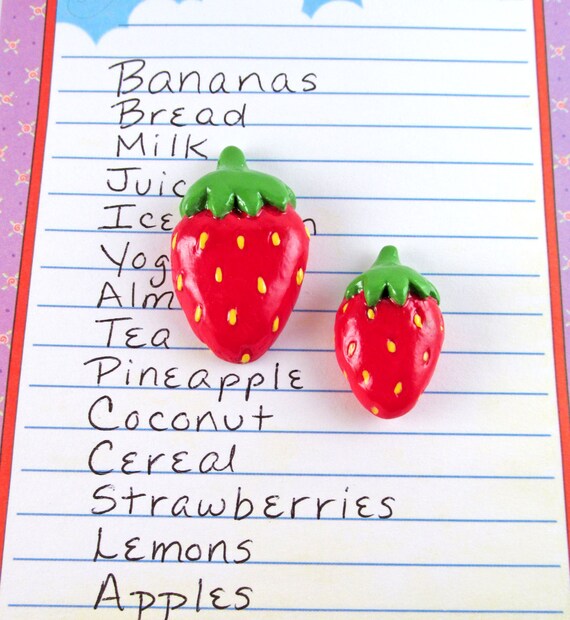 Bananas
Bread
Milk
Juic
Ice n
Yog
Alm
Tea
Pineapple
Coconut
Cereal
Strawberries
Lemons
Apples